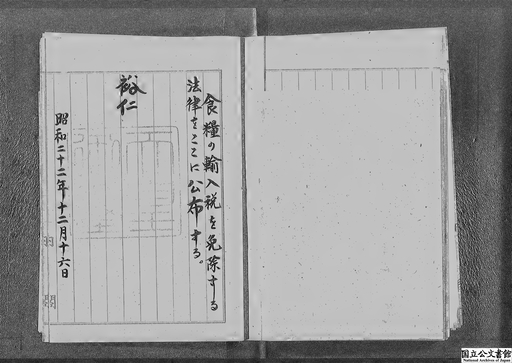 食糧の輸入税を免除する
法律をここに公布する。
裕仁
昭和二十二年十二月十六日
内閣
国立公文書館
National Archives of Japan